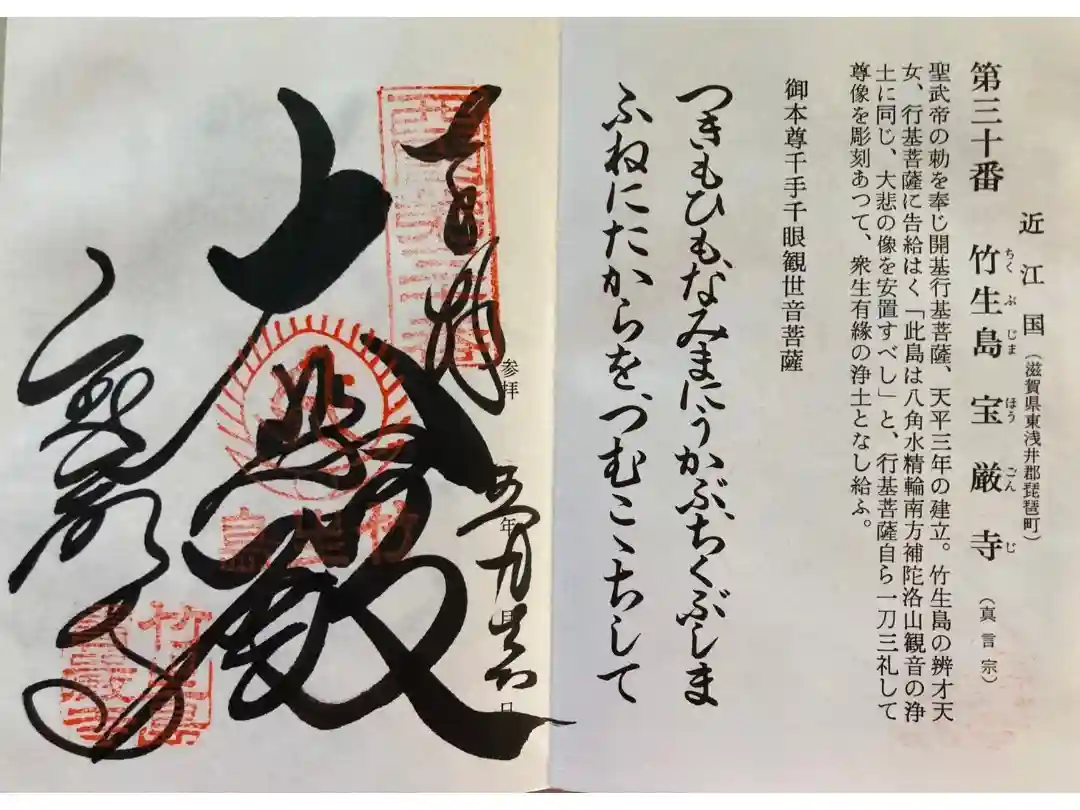 近江国(滋賀県東浅井郡琵琶町)
第三十番 竹生島宝厳寺(真言宗)
ちくぶじまほうごんじ
聖武帝の勅を奉じ開基行基菩薩、天平三年の建立。竹生島の辨才天
女、行基菩薩に告給はく「此島は八角水精輪南方補陀洛山観音の浄
土に同じ、大悲の像を安置すべし」と、行基菩薩自ら一刀三礼して
尊像を彫刻あつて、衆生有緣の浄土となし給ふ。
御本尊千手千眼観世音菩薩
つきもひも、なみまにうかぶ、ちくぶしま
ふねにたからを、つむこゝちして
参拝 年 月 日
大悲殿
竹生島
宝厳寺
竹生島